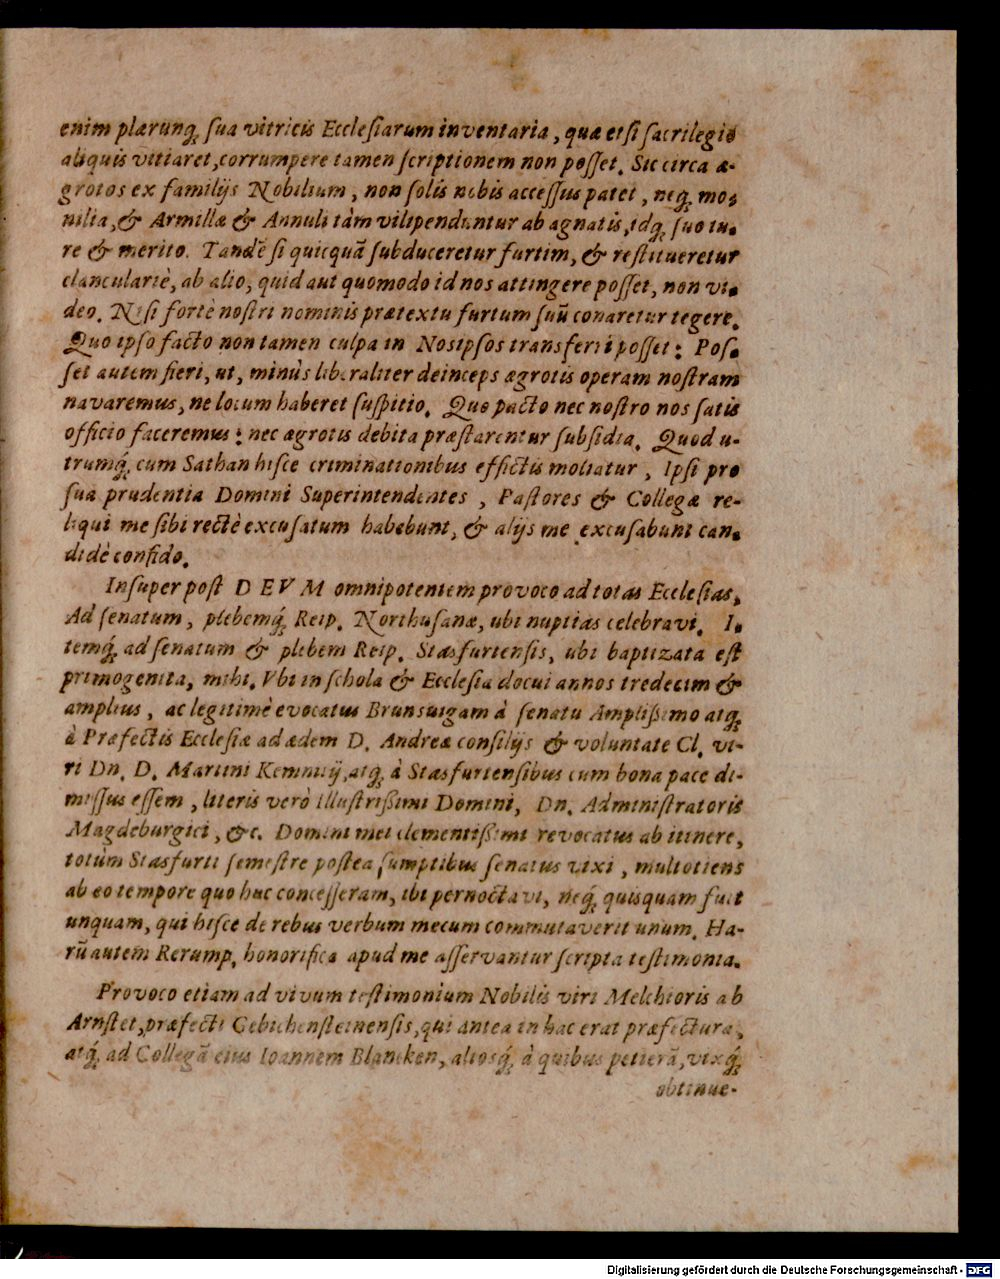 enim plærunq́; sua vitricis Ecclesiarum inventaria, quæ etsi sacrilegio
aliquis vitiaret, corrumpere tamen scriptionem non posset. Sic circa æ-
grotos ex familijs Nobilium, non solis nobis accessus patet, neq́; mo-
nilia, & Armillæ & Annuli tàm vilipenduntur ab agnatis, idq́; suo iu-
re & merito. Tandē si quicquā subduceretur furtim, & restitueretur
clanculariè, ab alio, quid aut quomodo id nos attingere posset, non vi-
deo. Nisi fortè nostri nominis prætextu furtum suū conaretur tegere.
Quo ipso facto non tamen culpa in Nosipsos transferri posset: Pos-
set autem fieri, ut, minùs liberaliter deinceps ægrotis operam nostram
navaremus, ne locum haberet suspitio. Quo pacto nec nostro nos satis
officio faceremus: nec ægrotis debita præstarentur subsidia. Quod u-
trumq́; cum Sathan hisce criminationibus effictis moliatur, Ipsi pro
sua prudentia Domini Superintendentes, Pastores & Collegæ re-
liqui me sibi rectè excusatum habebunt, & alijs me excusabunt can-
didè confido.
Insuper post DEVM omnipotentem provoco ad totas Ecclesias,
Ad senatum, plebemq́; Reip. Northusanæ, ubi nuptias celebravi. I-
temq́; ad senatum & plebem Reip. Stasfurtensis, ubi baptizata est
primogenita, mihi. Vbi in schola & Ecclesia docui annos tredecim &
amplius, ac legitimè evocatus Brunsuigam à senatu Amplißimo atq́;
à Præfectis Ecclesiæ ad ædem D. Andreæ consilijs & voluntate Cl. vi-
ri Dn. D. Martini Kemnitij, atq́; à Stasfurtensibus cum bona pace di-
missus essem, literis verò illustrißimi Domini, Dn. Administratoris
Magdeburgici, &c. Domini mei clementißimi revocatus ab itinere,
totùm Stasfurti semestre postea sumptibus senatus vixi, multotiens
ab eo tempore quo huc concesseram, ibi pernoctavi, neq́; quisquam fuit
unquam, qui hisce de rebus verbum mecum commutaverit unum. Ha-
rū autem Rerump. honorifica apud me asservantur scripta testimonia.
Provoco etiam ad vivum testimonium Nobilis viri Melchioris ab
Arnstet, præfecti Gebichensteinensis, qui antea in hac erat præfectura,
atq́; ad Collegā eius Ioannem Blancken, aliosq́; à quibus petierā, vixq́;
obtinue-
Digitalisierung gefördert durch die Deutsche Forschungsgemeinschaft - DFG